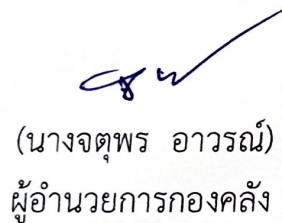 (นางจตุพร อาวรณ์)
ผู้อำนวยการกองคลัง